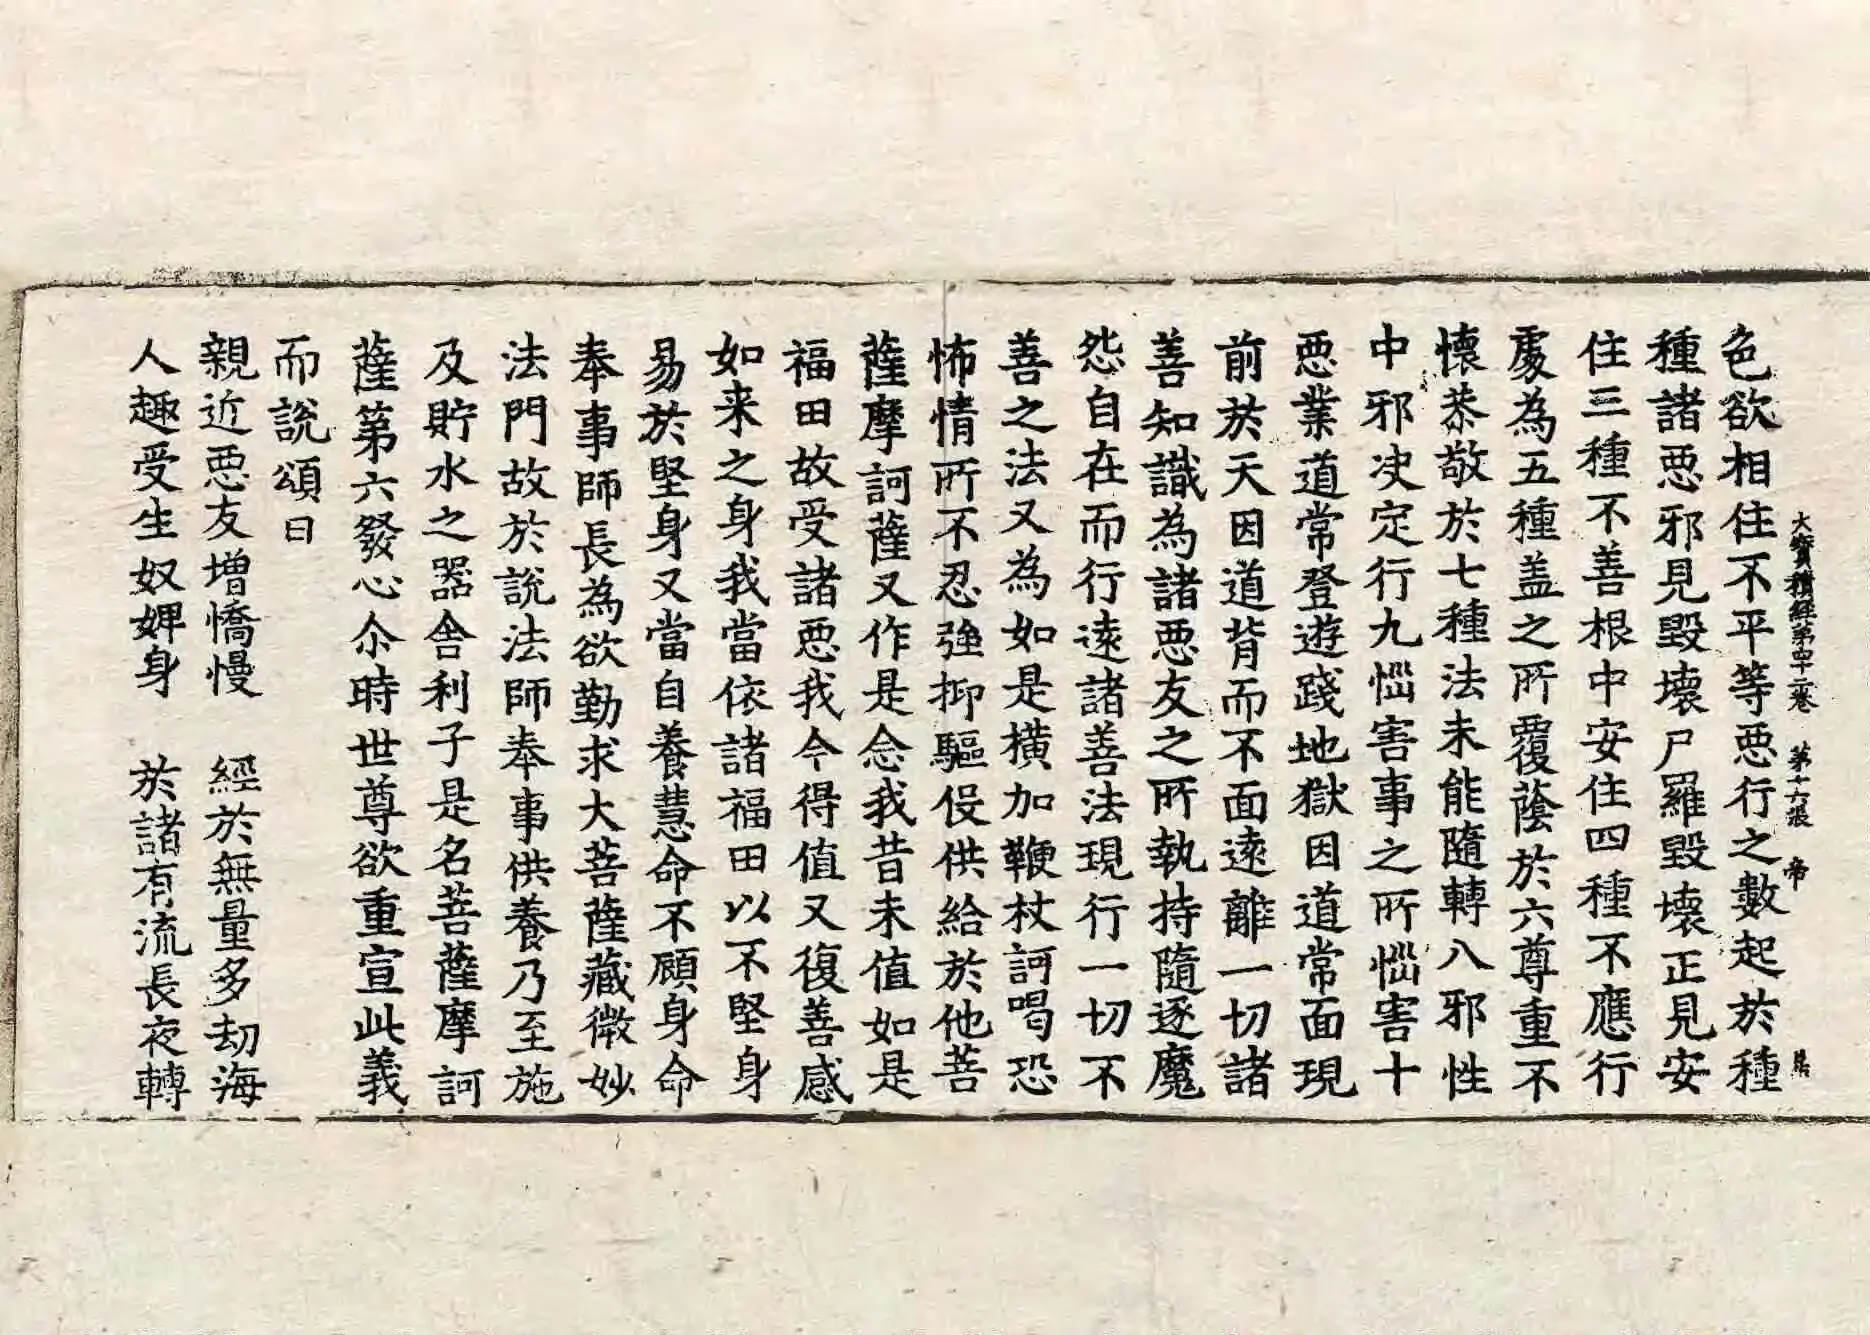 大寶積經第四十二卷 第十六張 帝
色欲相住不平等惡行之數起於種
種諸惡邪見毀壞尸羅毀壞正見安
住三種不善根中安住四種不應行
處為五種盖之所覆蔭於六尊重不
懷恭敬於七種法未能隨轉八邪性
中邪决定行九惱害事之所惱害十
惡業道常登遊踐地獄因道常面現
前於天因道背而不面遠離一切諸
善知識為諸惡友之所執持隨逐魔
怨自在而行遠諸善法現行一切不
善之法又為如是橫加鞭杖訶喝恐
怖情所不忍強抑驅伇供給於他菩
薩摩訶薩又作是念我昔未值如是
福田故受諸惡我今得值又復善感
如来之身我當依諸福田以不堅身
易於堅身又當自養慧命不顧身命
奉事師長為欲勤求大菩薩藏微妙
法門故於說法師奉事供養乃至施
及貯水之器舍利子是名菩薩摩訶
薩第六發心尒時世尊欲重宣此義
而說頌曰
親近惡友增憍慢 經於無量多劫海
人趣受生奴婢身 於諸有流長夜轉